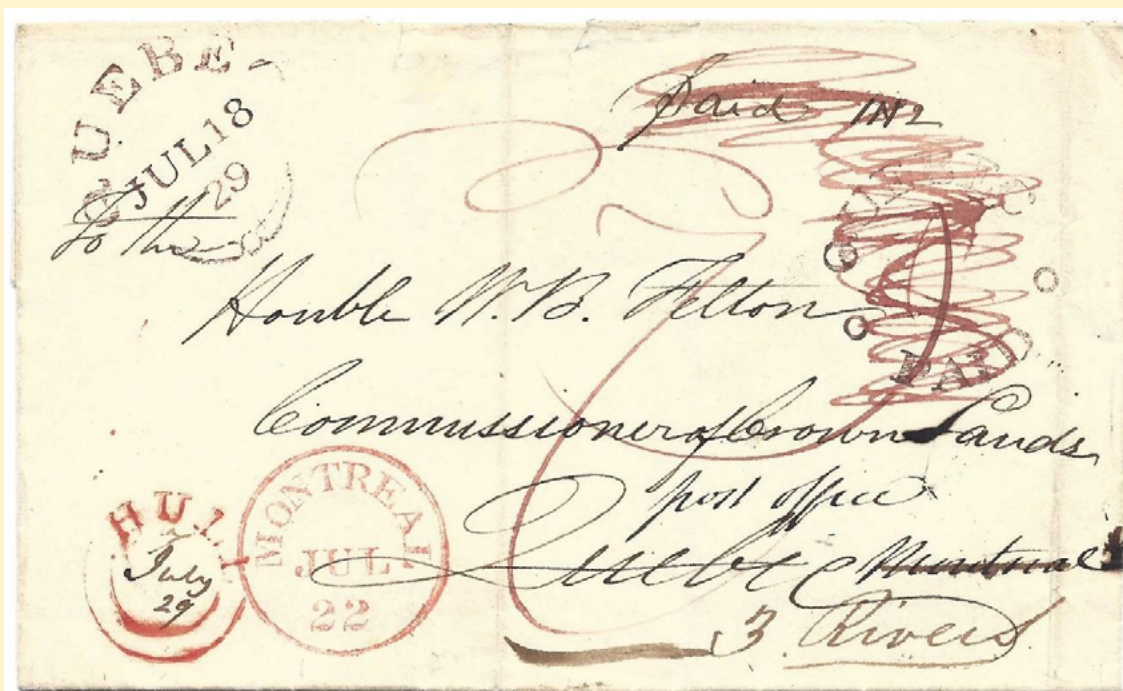 QUEBE
JUL 18
29
Paid 1N2
To the
Honble W. B. Felton
Commissioner of Crown Lands
post office
Quebec Montreal
3 Rivers
PAID
HULL
7
July
29
MONTREAL
JUL
22